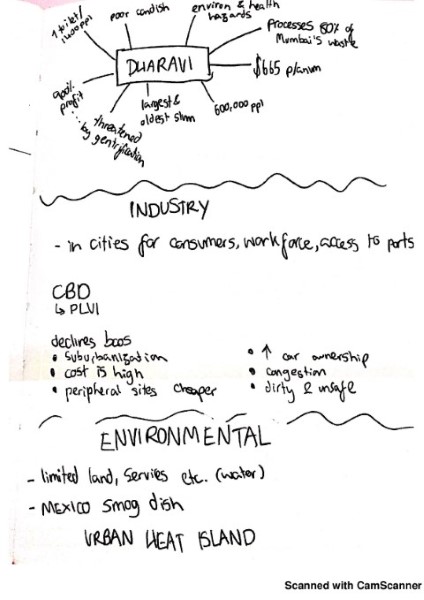 1 toilet/
1400 ppl
poor condish
environ & health
hazards
processes 80% of
Mumbai's waste
DHARAVI
$665 p/anum
900%
profit
... threatened
by gentrification
largest &
oldest slum
600,000 ppl
INDUSTRY
- in cities for consumers, workforce, access to ports
CBD
↳ PLVI
declines bcos
• suburbanization
• cost is high
• peripheral sites cheaper
• ↑ car ownership
• congestion
• dirty & unsafe
ENVIRONMENTAL
- limited land, servies etc. (water)
- MEXICO smog dish
URBAN HEAT ISLAND
Scanned with CamScanner